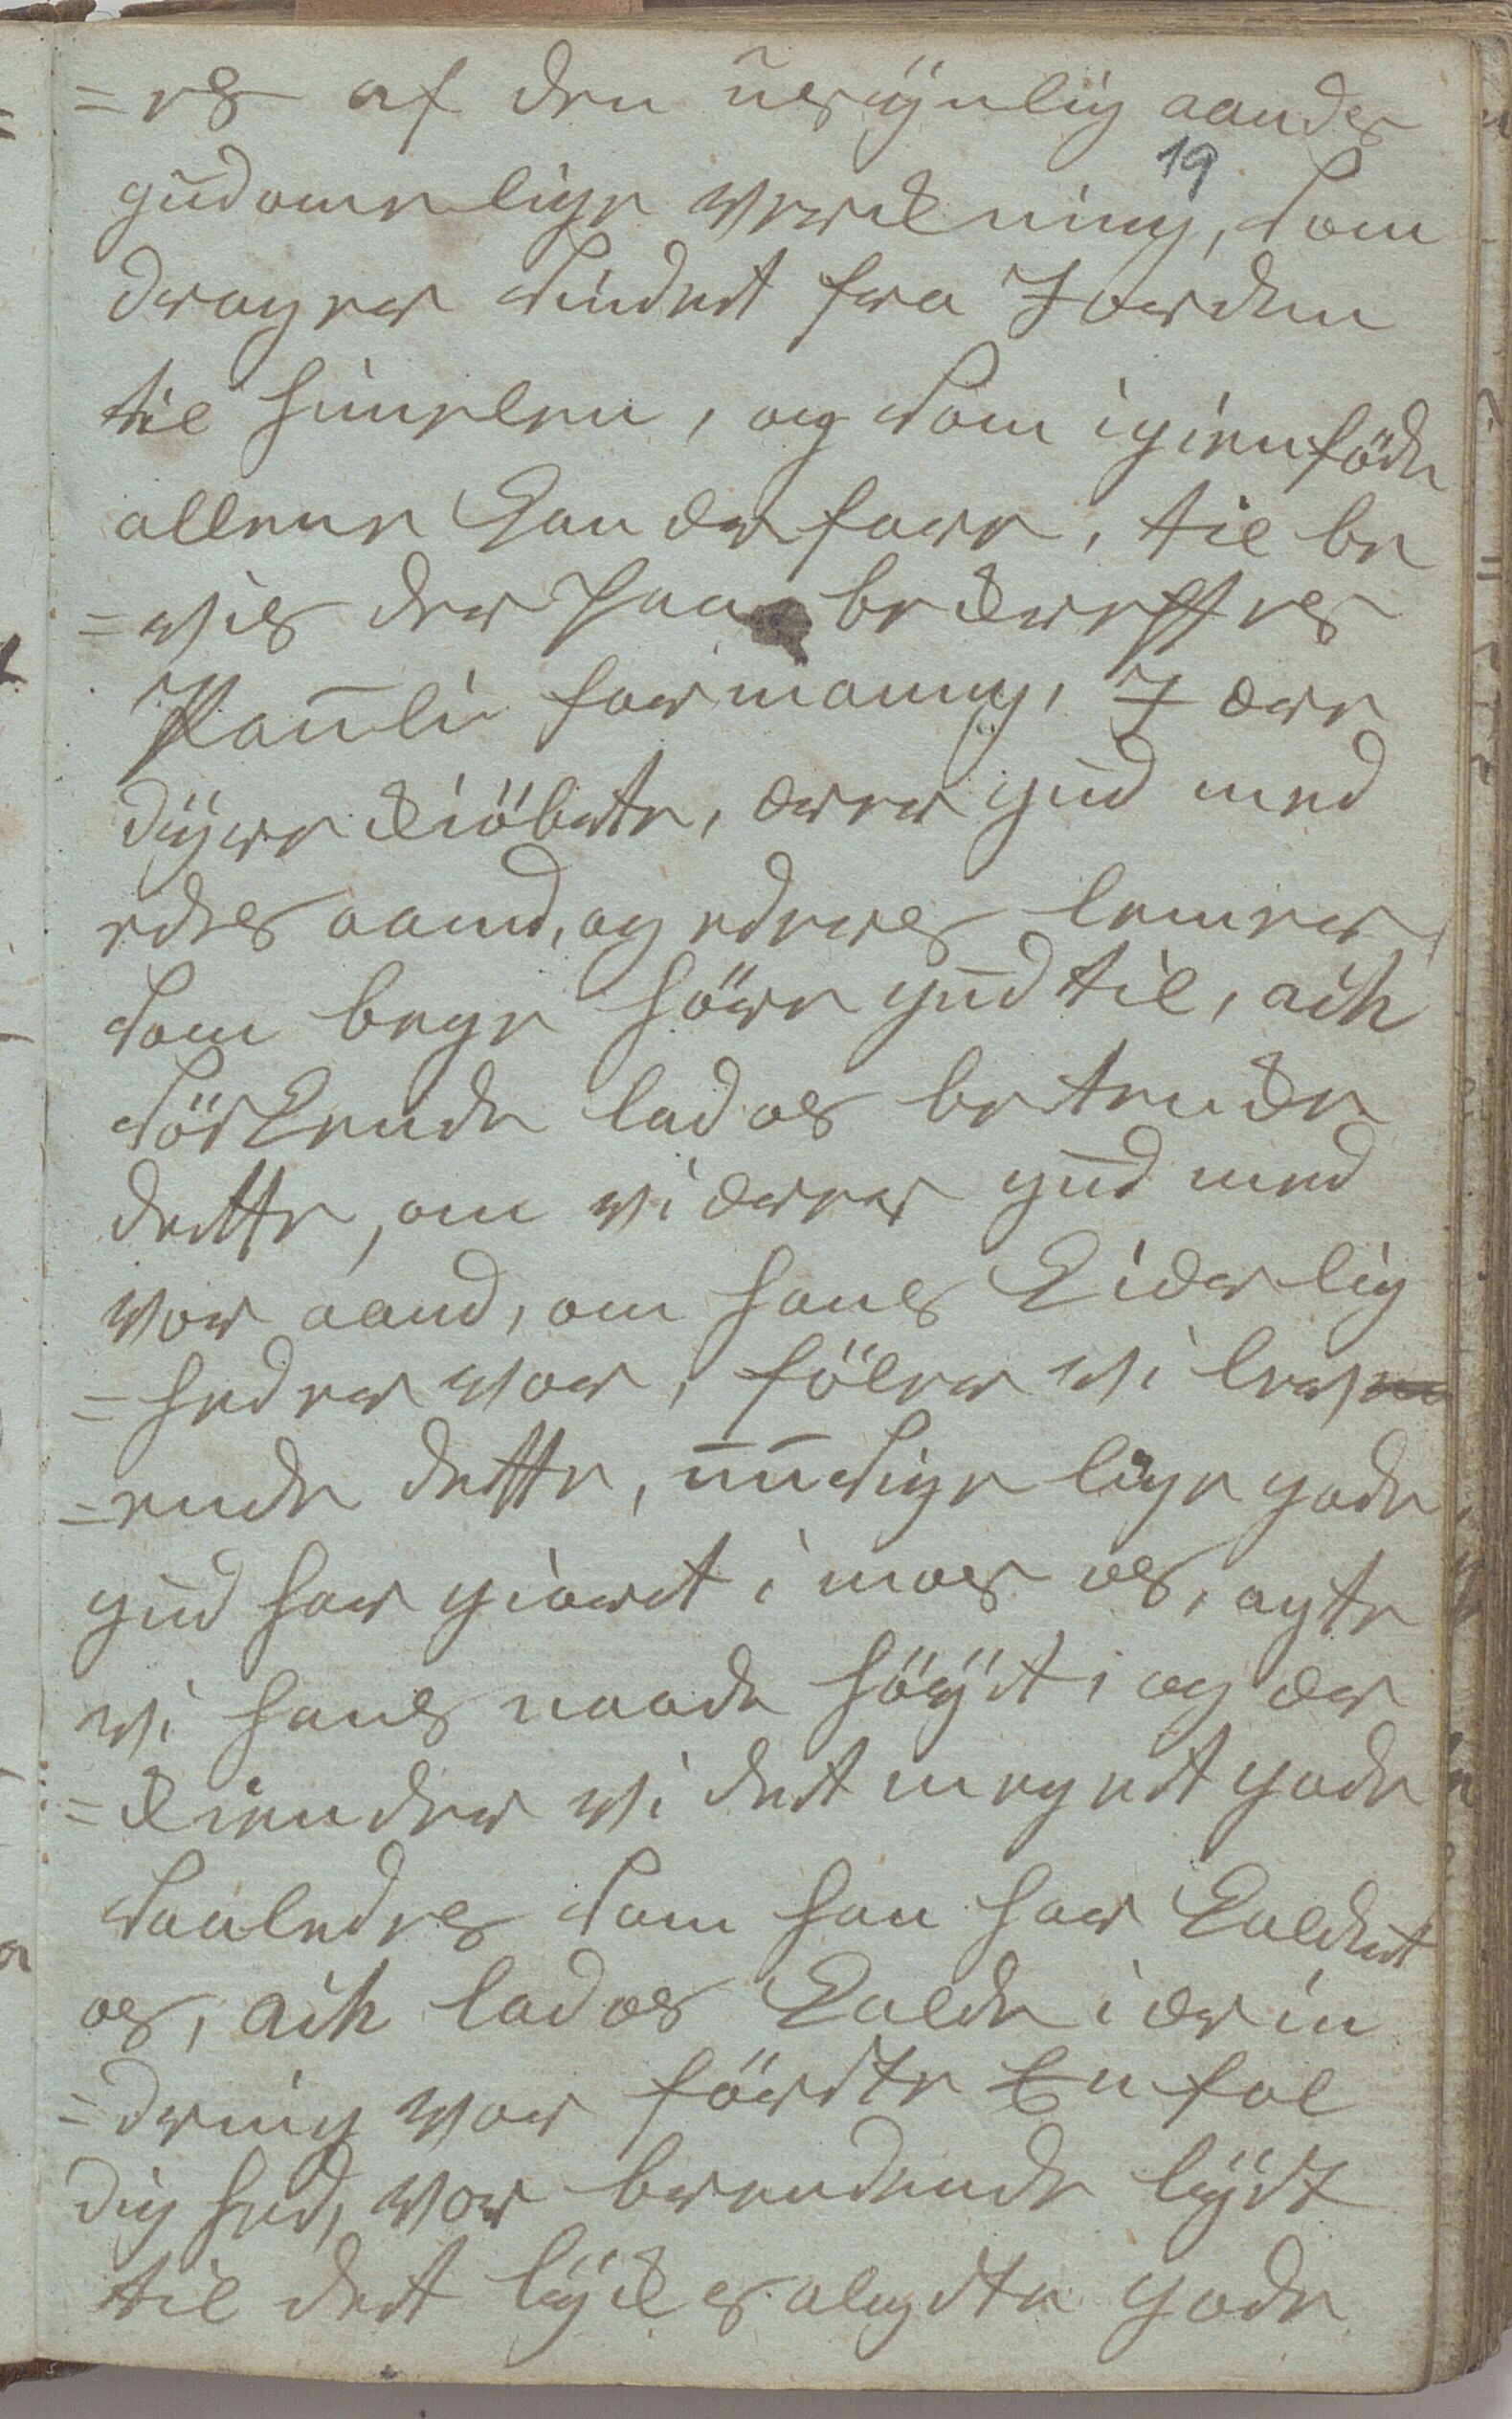 =es af den usÿnlig aandes
19
guddomelige verckning, som
drager sindet fra Jorden
til himelen, og som igienføde
allene kand erfare, til be
=vis der paa bekreftes
Paüli formaning, I ere
dÿre kiöbete, ærer güd med
eders aand, og eders lemer,
som bege höre güd til, ach
sösKende lad os betencke
dette, om vi ærer güd med
vor aand, om hans kierlig
=hed er vor, föler vi lev
=ende dette, uusigelige gode
güd har giort imod os, agte
vi hans naade höÿt, og er
=kiender vi det meget gode
saaledes som han har kaldet
os, ach lad os kalde i erin
=dring vor förste Enfol
dighed, vor brendende lÿst
til det lÿksaligste gode